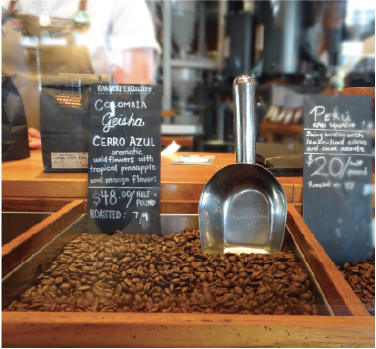 COLOMBIA
Geisha
CERRO AZUL
aromatic
wildflowers with
tropical pineapple
and mango flavors
$48.00/HALF
POUND
ROASTED: 7/9
PERÚ
SAN IGNACIO
Juicy acidity with
lemon-lime citrus
and cocoa accents
$20/half
pound
Roasted: